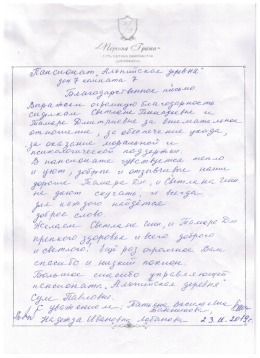 Пансионат, Альпийская деревня
дом 7 комната 7
Благодарственное письмо
Выражаем огромную благодарность
сиделкам Светлане Геннадиевне и
Тамаре Дмитриевне за внимательное
отношение, за обеспечение ухода,
за оказание моральной и
психологической поддержки.
В пансионате чувствуется тепло
и уют, добрые и отзывчивые наши
дорогие Тамара Дм, и Светлана Ген
не дают скучать, и всегда
для каждого найдётся
доброе слово
Желаем Светлане Ген, и Тамаре Дм
крепкого здоровья и всего доброго
и светлого. Ещё раз огромное Вам
спасибо и низкий поклон.
Большое спасибо управляющей
пансионата. Альпийская деревня
Суле Павловне.
С уважением: Татьяна Васильевна
Надежда Ивановна Лобанова 23.11.2019г.